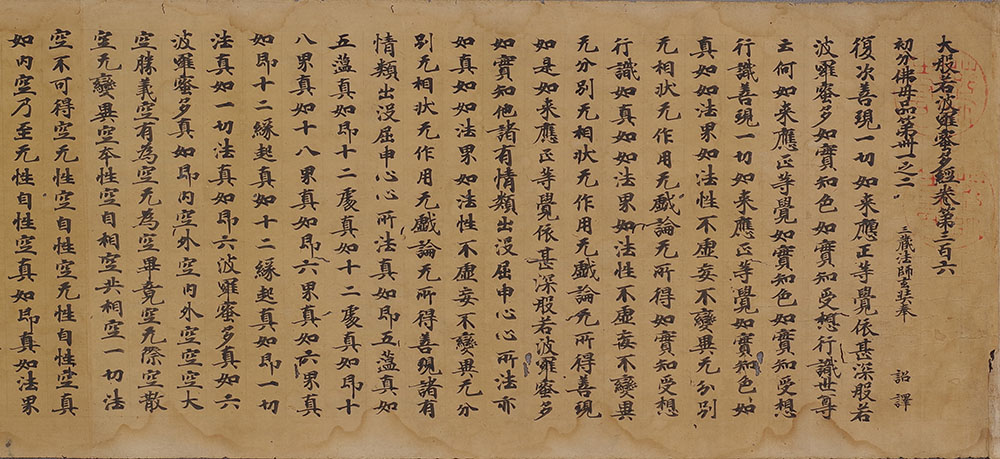 大般若波羅蜜多經卷第三百六
初分佛母品第卌一之二 三藏法師玄奘奉 詔譯
復次善現一切如来應正等覺依甚深般若
波羅蜜多如實知色如實知受想行識世尊
云何如来應正等覺如實知色如實知受想
行識善現一切如来應正等覺如實知色如
真如如法界如法性不虛妄不變異无分別
无相狀无作用无戲論无所得如實知受想
行識如真如如法界如法性不虛妄不變異
无分別无相狀无作用无戲論无所得善現
如是如来應正等覺依甚深般若波羅蜜多
如實知他諸有情類出没屈申心心所法亦
如真如如法界如法性不虛妄不變異无分
別无相狀无作用无戲論无所得善現諸有
情類出没屈申心心所法真如即五蘊真如
五蘊真如即十二處真如十二處真如即十
八界真如十八界真如即六界真如六界真
如即十二緣起真如十二緣起真如即一切
法真如一切法真如即六波羅蜜多真如六
波羅蜜多真如即内空外空内外空空空大
空勝義空有為空无為空畢竟空无際空散
空无變異空本性空自相空共相空一切法
空不可得空无性空自性空无性自性空真
如内空乃至无性自性空真如即真如法界